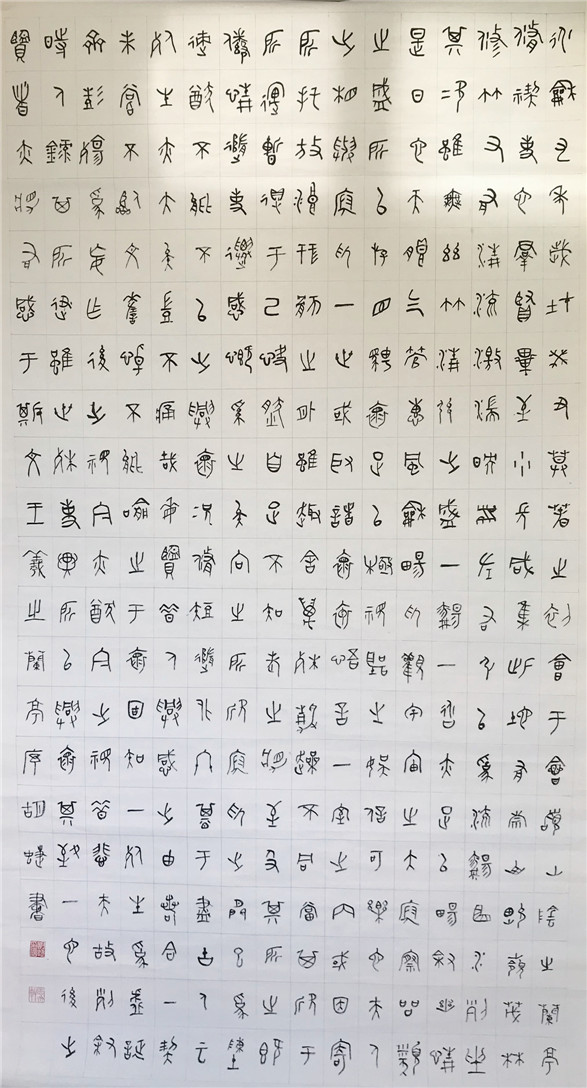 永和九年歲在癸丑暮春之初會于會稽山陰之蘭亭
修禊事也群賢畢至少長咸集此地有崇山峻嶺茂林
修竹又有清流激湍映帶左右引以為流觴曲水列坐
其次雖無絲竹管弦之盛一觴一詠亦足以暢敘幽情
是日也天朗氣清惠風和暢仰觀宇宙之大俯察品類
之盛所以游目騁懷足以極視聽之娛信可樂也夫人
之相與俯仰一世或取諸懷抱悟言一室之內或因寄
所託放浪形骸之外雖趣舍萬殊靜躁不同當其欣于
所遇暫得于己快然自足不知老之將至及其所之既
倦情隨事遷感慨係之矣向之所欣俯仰之間已為陳
迹猶不能不以之興懷況修短隨化終期于盡古人云
死生亦大矣豈不痛哉每覽昔人興感之由若合一契
未嘗不臨文嗟悼不能喻之于懷固知一死生為虛誕
齊彭殤為妄作後之視今亦猶今之視昔悲夫故列敘
時人錄其所述雖世殊事異所以興懷其致一也後之
覽者亦將有感于斯文王羲之蘭亭序胡書